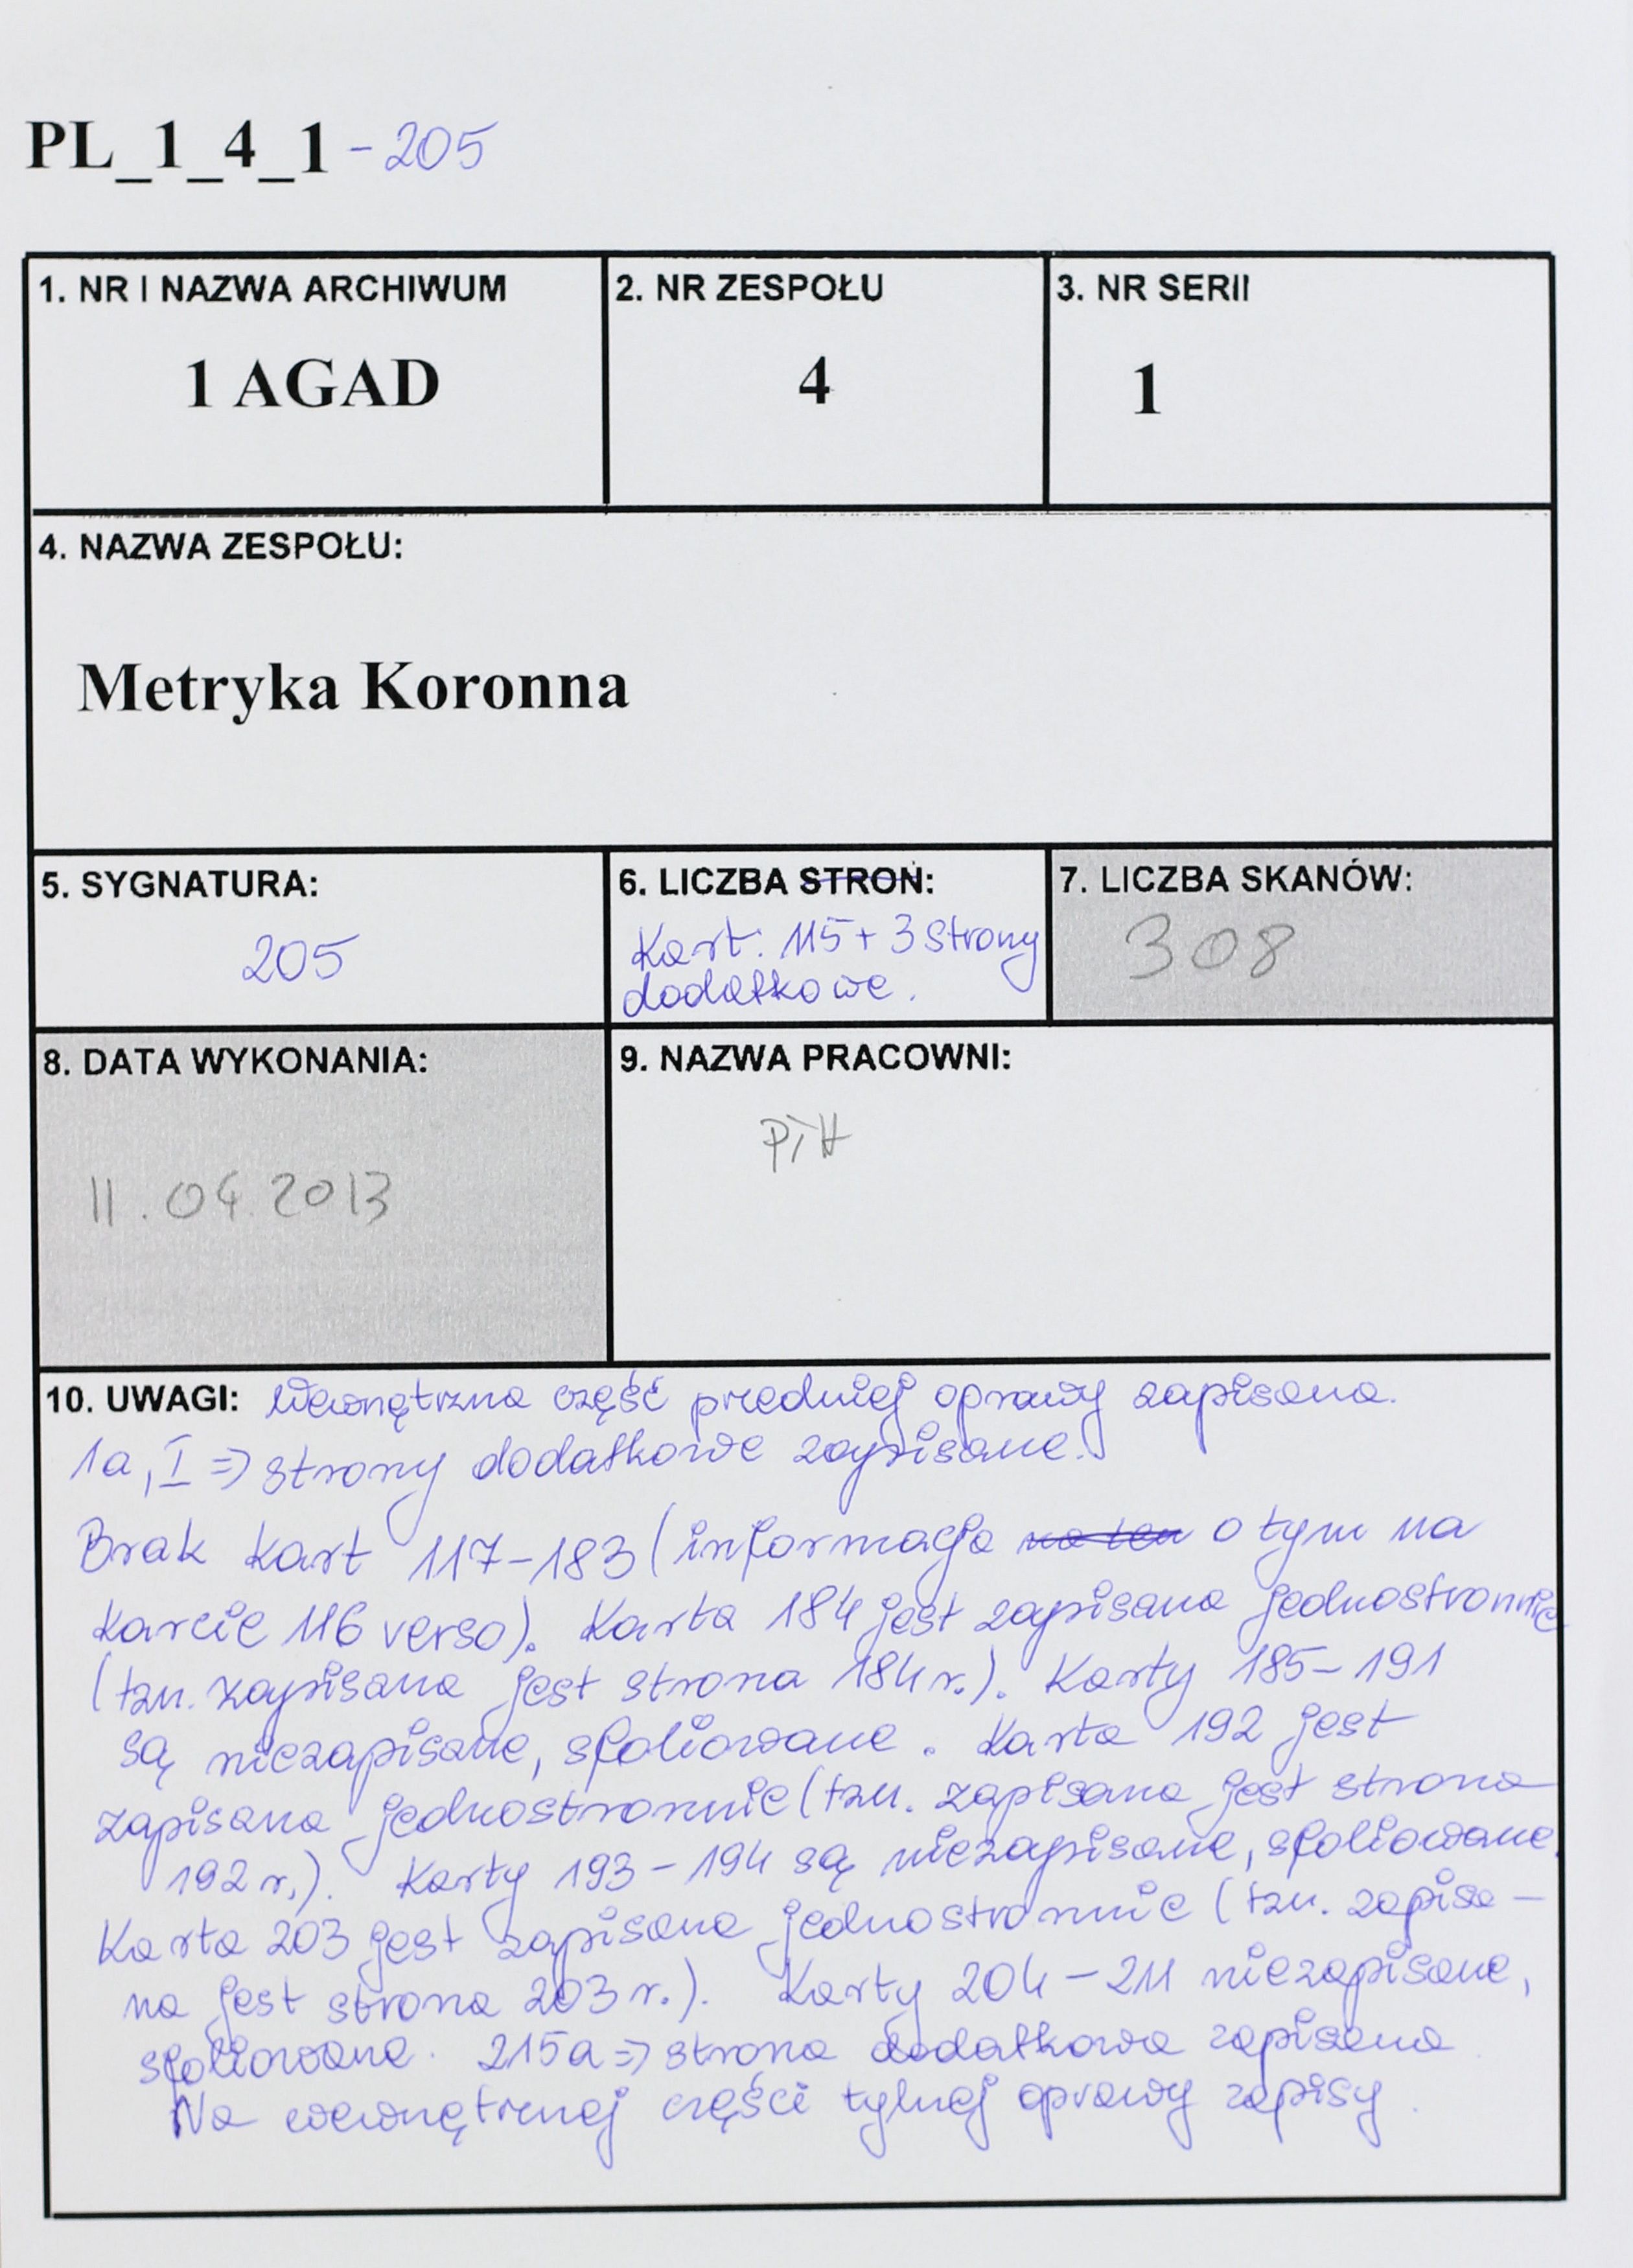 PL_1_4_1 - 205
1. NR I NAZWA ARCHIWUM
1 AGAD
2. NR ZESPOŁU
4
3. NR SERII
1
4. NAZWA ZESPOŁU:
Metryka Koronna
5. SYGNATURA:
205
6. LICZBA STRON:
Kart: 115 + 3 strony
dodatkowe.
7. LICZBA SKANÓW:
308
8. DATA WYKONANIA:
11.04.2013
9. NAZWA PRACOWNI:
10. UWAGI: Wewnętrzna część przedniej oprawy zapisana.
1a, I => strony dodatkowe zapisane.
Brak kart 117-183 (informacja na ten o tym na
karcie 116 verso). Karta 184 jest zapisana jednostronnie
(tzn. zapisana jest strona 184 r.). Karty 185-191
są niezapisane, sfoliowane. Karta 192 jest
zapisana jednostronnie (tzn. zapisana jest strona
192 r.). Karty 193-194 są niezapisane, sfoliowane.
Karta 203 jest zapisana jednostronnie (tzn. zapisa-
na jest strona 203 r.). Karty 204-211 niezapisane,
sfoliowane. 215a => strona dodatkowa zapisana
Na wewnętrznej części tylnej oprawy zapisy.